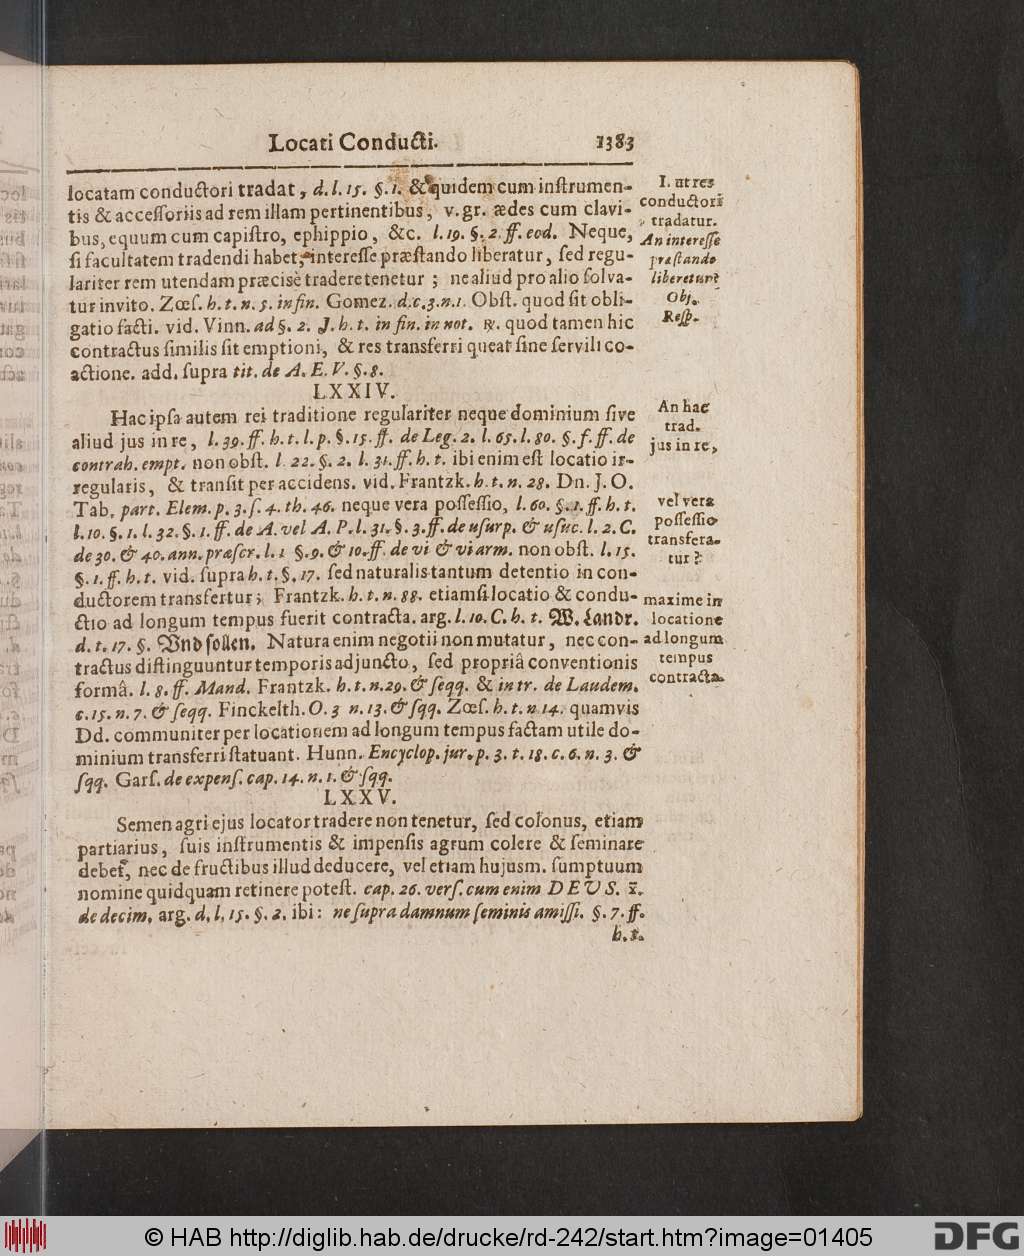 Locati Conducti. 1383
locatam conductori tradat, d. l. 15. §. 1. & quidem cum instrumen-
tis & accessoriis ad rem illam pertinentibus, v. gr. ædes cum clavi-
bus, equum cum capistro, ephippio, &c. l. 19. §. 2. ff. eod. Neque,
si facultatem tradendi habet, interesse præstando liberatur, sed regu-
lariter rem utendam præcisè tradere tenetur; ne aliud pro alio solva-
tur invito. Zœs. h. t. n. 5. in fin. Gomez. d. c. 3. n. 1. Obst. quod sit obli-
gatio facti. vid. Vinn. ad §. 2. J. h. t. in fin. in not. ℞. quod tamen hic
contractus similis sit emptioni, & res transferri queat sine servili co-
actione. add. supra tit. de A. E. V. §. 8.
LXXIV.
Hac ipsa autem rei traditione regulariter neque dominium sive
aliud jus in re, l. 39. ff. h. t. l. p. §. 15. ff. de Leg. 2. l. 65. l. 80. §. f. ff. de
contrah. empt. non obst. l. 22. §. 2. l. 31. ff. h. t. ibi enim est locatio ir-
regularis, & transit per accidens. vid. Frantzk. h. t. n. 28. Dn. J. O.
Tab. part. Elem. p. 3. s. 4. th. 46. neque vera possessio, l. 60. §. 1. ff. h. t.
l. 10. §. 1. l. 32. §. 1. ff. de A. vel A. P. l. 31. §. 3. ff. de usurp. & usuc. l. 2. C.
de 30. & 40. ann. præscr. l. 1 §. 9. & 10. ff. de vi & vi arm. non obst. l. 15.
§. 1. ff. h. t. vid. supra h. t. §. 17. sed naturalis tantum detentio in con-
ductorem transfertur; Frantzk. h. t. n. 88. etiamsi locatio & condu-
ctio ad longum tempus fuerit contracta. arg. l. 10. C. h. t. W. Landr.
d. t. 17. §. Vnd sollen. Natura enim negotii non mutatur, nec con-
tractus distinguuntur temporis adjuncto, sed propriâ conventionis
formâ. l. 8. ff. Mand. Frantzk. h. t. n. 29. & seqq. & in tr. de Laudem.
c. 15. n. 7. & seqq. Finckelth. O. 3 n. 13. & sqq. Zœs. h. t. n 14. quamvis
Dd. communiter per locationem ad longum tempus factam utile do-
minium transferri statuant. Hunn. Encyclop. jur. p. 3. t. 18. c. 6. n. 3. &
sqq. Gars. de expens. cap. 14. n. 1. & sqq.
LXXV.
Semen agri ejus locator tradere non tenetur, sed colonus, etiam
partiarius, suis instrumentis & impensis agrum colere & seminare
debet, nec de fructibus illud deducere, vel etiam hujusm. sumptuum
nomine quidquam retinere potest. cap. 26. vers. cum enim DEUS.
de decim. arg. d. l. 15. §. 2. ibi: ne supra damnum seminis amissi. §. 7. ff.
h. t.
I. ut res
conductori
tradatur.
An interesse
præstando
liberetur?
Obj.
Resp.
An hac
trad.
jus in re,
vel vera
possessio
transfera-
tur?
maxime in
locatione
ad longum
tempus
contracta.
© HAB http://diglib.hab.de/drucke/rd-242/start.htm?image=01405
DFG